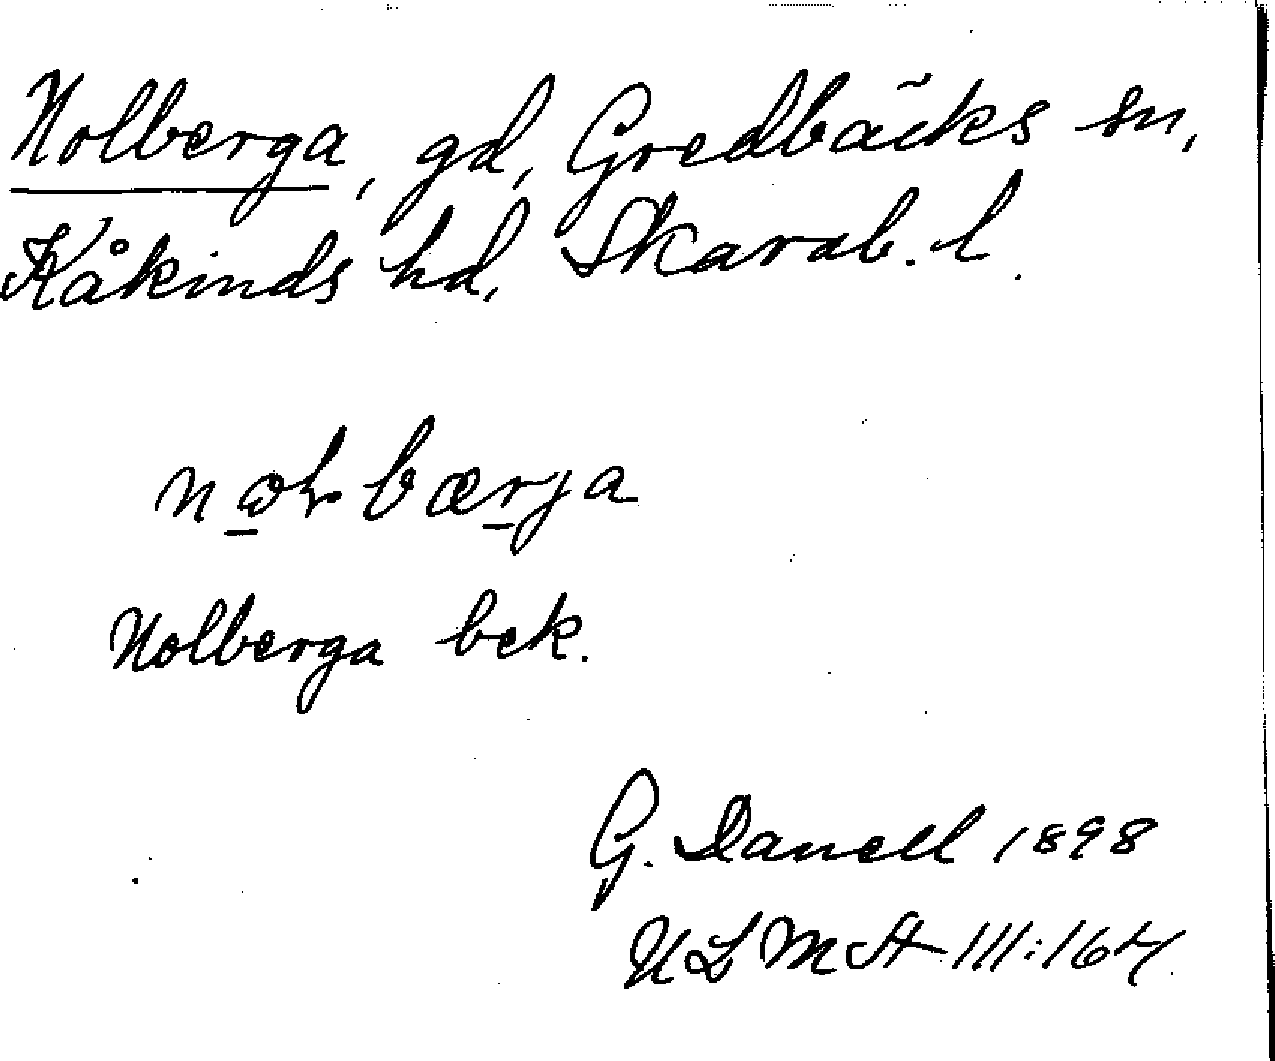 Nolberga, gd, Gredbäcks sn,
Kåkinds hd, Skarab. l.
bærja
Nolberga bek.
G. Danell 1898
III:164